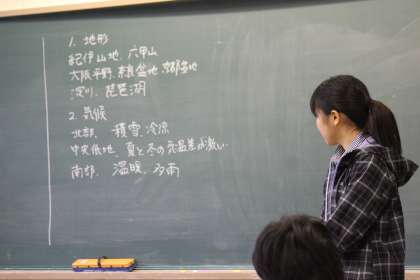 1. 地形
紀伊山地、六甲山
大阪平野、奈良盆地、京都盆地
淀川、琵琶湖
2. 気候
北部、積雪、冷涼
中央低地 夏と冬の気温差が激しい
南部、温暖、多雨